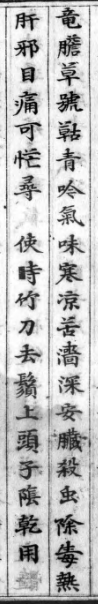 竜膽草號䓀青吟氣味寒凉苦濇深安臟殺虫除毒熱
肝邪目痛可忙尋使時竹刀去鬚上頭子蔭乾用